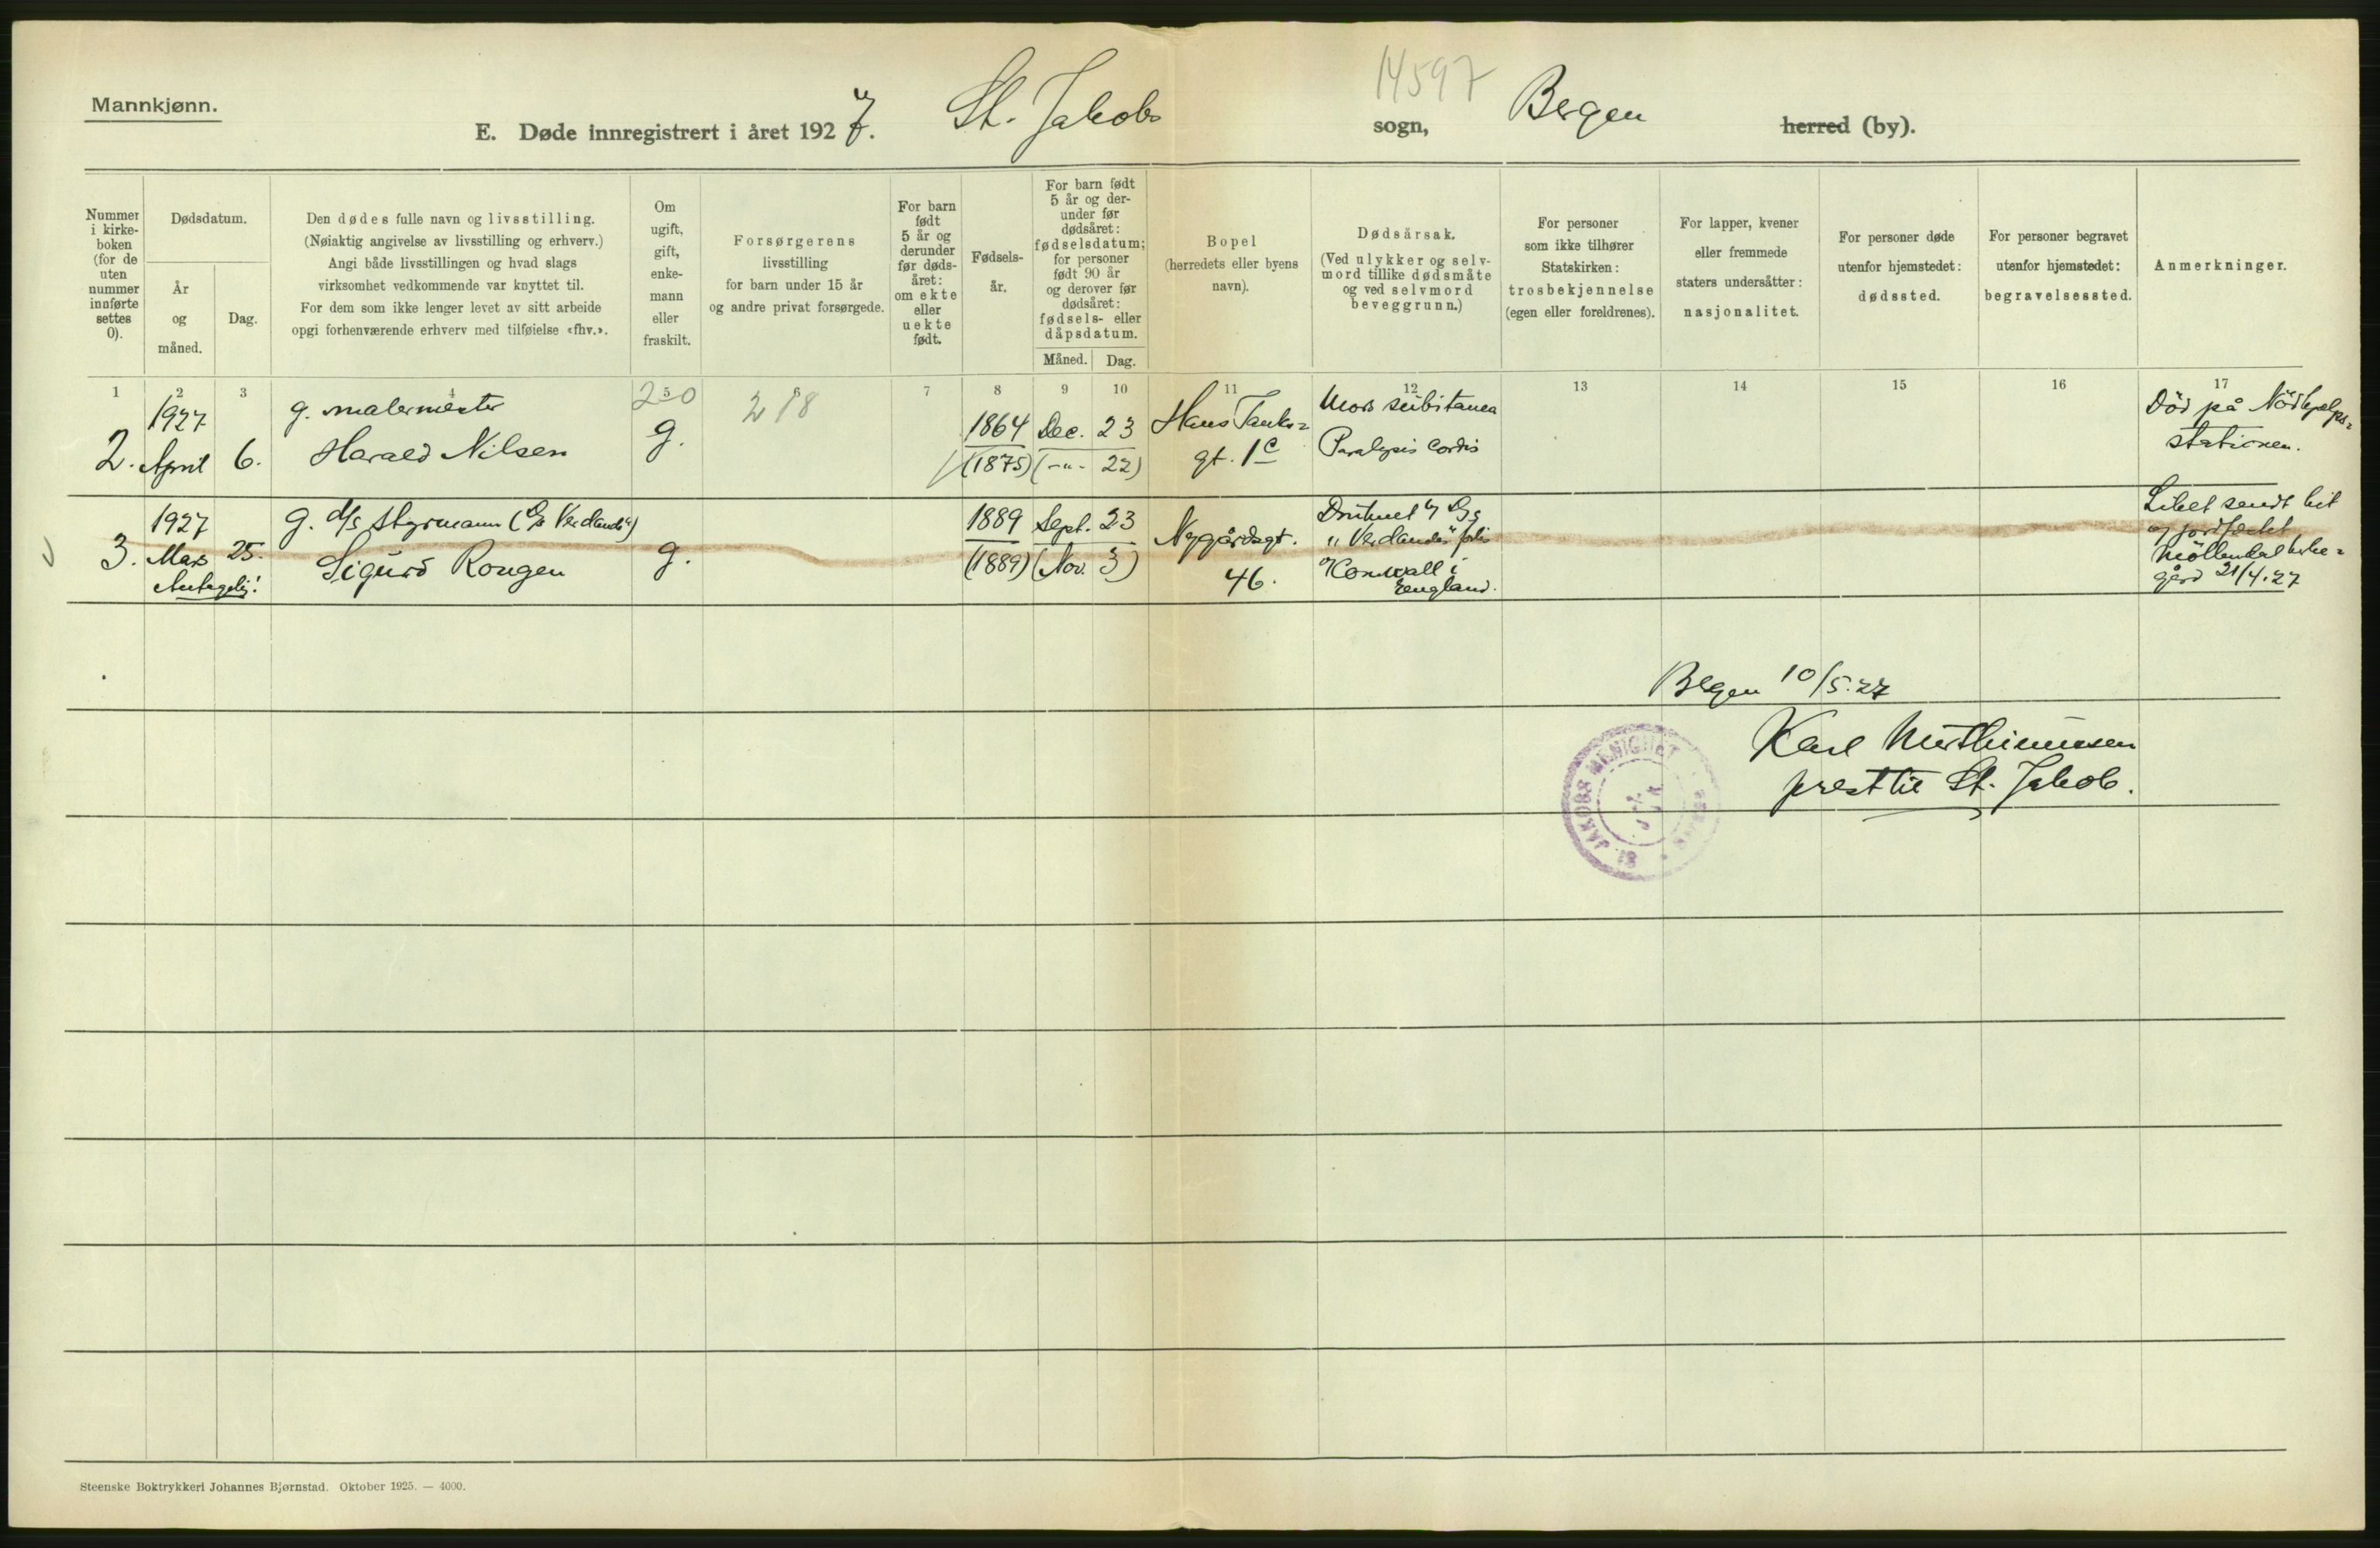 Mannkjønn.
14597
E. Døde innregistrert i året 1927. St. Jakobs sogn, Bergen herred (by).
Nummer
i kirke-
boken
(for de
uten
nummer
innførte
settes
0).
Dødsdatum.
År
og
måned.
Dag.
Den dødes fulle navn og livsstilling.
(Nøiaktig angivelse av livsstilling og erhverv.)
Angi både livsstillingen og hvad slags
virksomhet vedkommende var knyttet til.
For dem som ikke lenger levet av sitt arbeide
opgi forhenværende erhverv med tilføielse «fhv.».
Om
ugift,
gift,
enke-
mann
eller
fraskilt.
Forsørgerens
livsstilling
for barn under 15 år
og andre privat forsørgede.
For barn
født
5 år og
derunder
før døds-
året:
om ekte
eller
uekte
født.
Fødsels-
år.
For barn født
5 år og der-
under før
dødsåret:
fødselsdatum;
for personer
født 90 år
og derover før
dødsåret:
fødsels- eller
dåpsdatum.
Måned.
Dag.
Bopel
(herredets eller byens
navn).
Dødsårsak.
(Ved ulykker og selv-
mord tillike dødsmåte
og ved selvmord
beveggrunn.)
For personer
som ikke tilhører
Statskirken:
trosbekjennelse
(egen eller foreldrenes).
For lapper, kvener
eller fremmede
staters undersåtter:
nasjonalitet.
For personer døde
utenfor hjemstedet:
dødssted.
For personer begravet
utenfor hjemstedet:
begravelsessted.
Anmerkninger.
1 2 3 4 5 6 7 8 9 10 11 12 13 14 15 16 17
2.
1927
April
6.
g. malermester
Harald Nilsen
250
g.
218
1864
(1875)
Dec. 23
(-"- 22)
Hans Tanks=
gt. 1c
Mors subitanea
Paralysis Cordis
Død på Nödhjelps=
stationen.
3.
1927
Mars
Antagelig!
25.
g. d/s styrmann (D/s Verdandi")
Sigurd Rongen
g.
1889
(1889)
Sept. 23
(Nov. 3)
Nygårdsgt.
46.
Druknet D/s
"Verdandis" forlis
v/Cornwall i
England.
Liket sendt hit
og jordfæstet
Möllendal kirke=
gård 21/4.27
Bergen 10/5.27
Karl
prest til St. Jakob.
St. JAKOBS MENIGHET
Steenske Boktrykkeri Johannes Bjørnstad. Oktober 1925. — 4000.